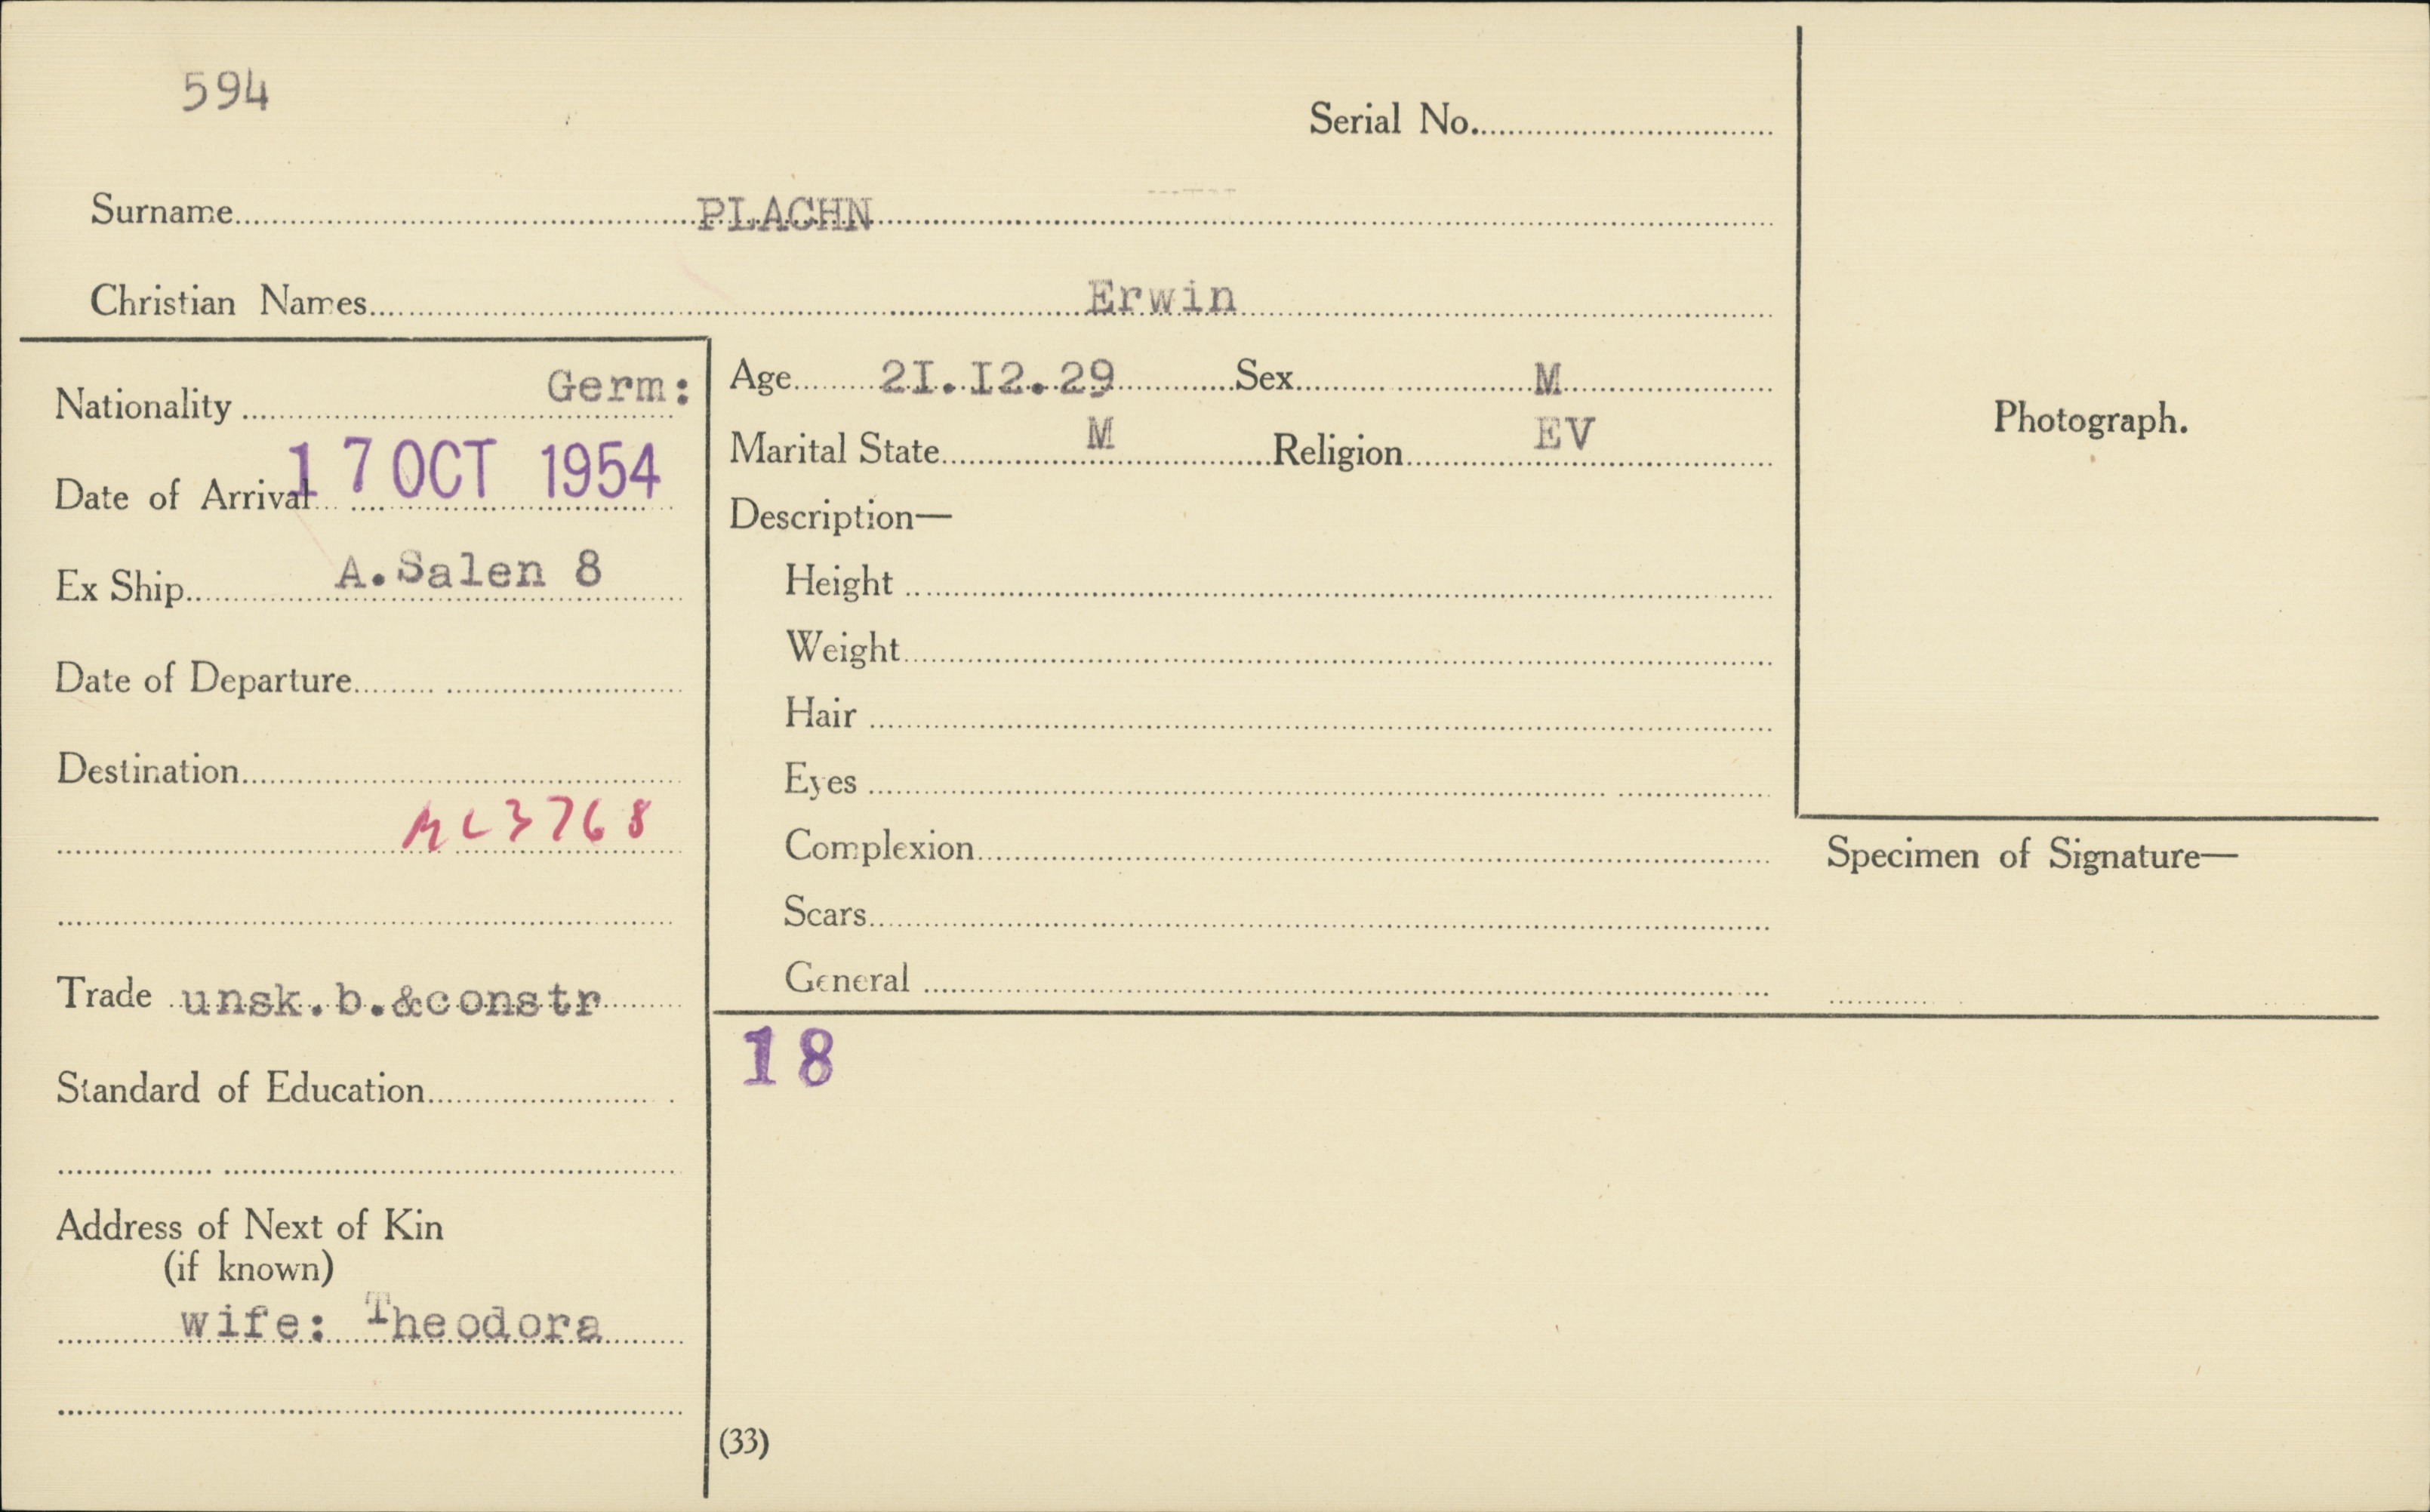 594
Serial No.
Surname PLACHN
Christian Names Erwin
Nationality Germ:
Date of Arrival 17 OCT 1954
Ex Ship A.Salen 8
Date of Departure
Destination
3768
Trade unsk.b.&constr
Standard of Education
Address of Next of Kin
(if known)
wife: Theodora
Age 2I.I2.29 Sex M
Marital State M Religion EV
Description—
Height
Weight
Hair
Eyes
Complexion
Scars
General
18
(33)
Photograph.
Specimen of Signature—